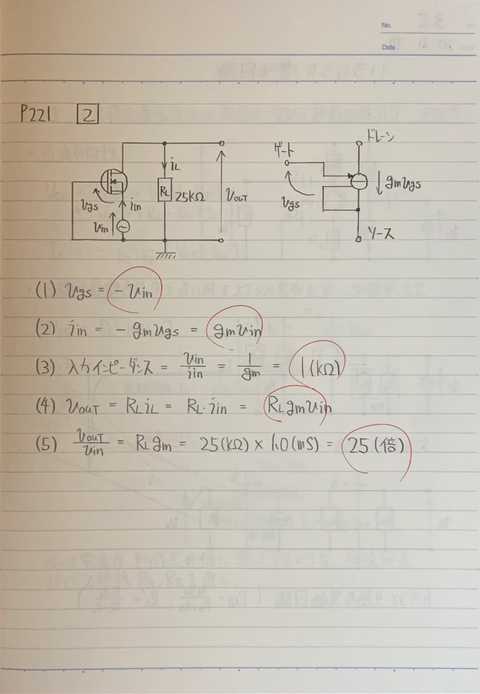 No.
Date
P221 2
ドレーン
ゲート
iL
RL 25kΩ
vOUT
gmvgs
vgs
iin
vgs
vin
ソース
(1) vgs = -vin
(2) iin = -gmvgs = gmvin
(3) 入力インピーダンス = vin/iin = 1/gm = 1(kΩ)
(4) vOUT = RL iL = RL・iin = RL gm vin
(5) vOUT/vin = RL gm = 25(kΩ) × 1.0(mS) = 25(倍)